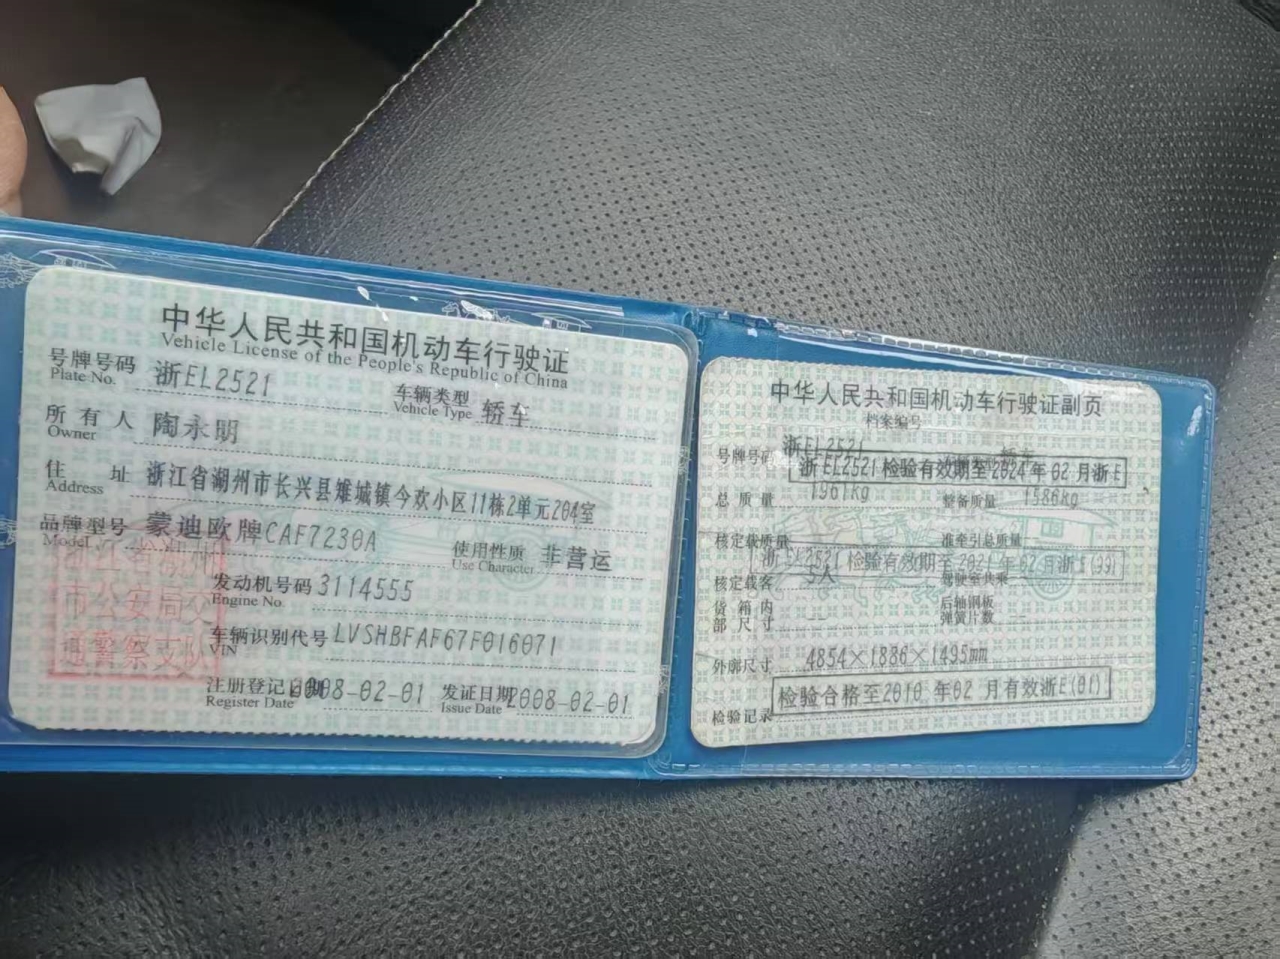 中华人民共和国机动车行驶证
Vehicle License of the People's Republic of China
号牌号码 浙EL2521 车辆类型 轿车
Plate No. Vehicle Type
所有人 陶永明
Owner
住址 浙江省湖州市长兴县雉城镇今欢小区11栋2单元204室
Address
品牌型号 蒙迪欧牌CAF7230A 使用性质 非营运
Model Use Character
发动机号码 3114555
Engine No.
车辆识别代号 LVSHBFAF67F016071
VIN
注册登记日期 2008-02-01 发证日期 2008-02-01
Register Date Issue Date
浙江省湖州
市公安局交
通警察支队
中华人民共和国机动车行驶证副页
档案编号
号牌号码 浙EL2521 轿车
浙EL2521 检验有效期至2024年02月浙E
总质量 1961kg 整备质量 1586kg
核定载质量 -- 准牵引总质量 --
浙EL2521 检验有效期至2021年02月浙E(99)
核定载客 5人 驾驶室共乘 --
货箱内部尺寸 -- 后轴钢板弹簧片数 --
外廓尺寸 4854×1886×1495mm
检验合格至2010年02月有效浙E(01)
检验记录